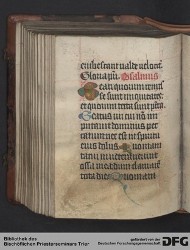 erubescant valde veloci
Gloria p̄ Psalmus
Beati quorum remis
se sunt iniquitates
et quorum tecta sunt pctā
Beatus vir cui nō im
putavit dominus pec
catum nec est in spiritu
eius dolus Quoniam
tacui inveteraverunt
ossa mea dum clamarē
tota die Quoniam
Bibliothek des
Bischöflichen Priesterseminars Trier
gefördert von der
Deutschen Forschungsgemeinschaft
DFG